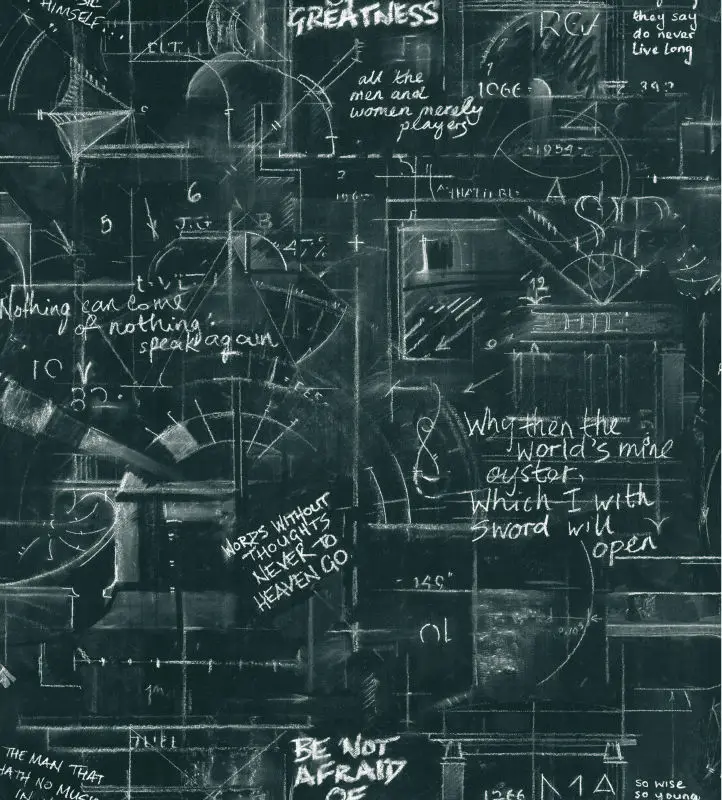 HIMSELF...
GREATNESS
RGV
they say
do never
live long
all the
men and
women merely
players
1066
392
1954
6
5
J.G
B
47%
A
SIP
12
Nothing can come
of nothing:
speak again
10
Why then the
world's mine
oyster,
Which I with
Sword will
open
8
WORDS WITHOUT
THOUGHTS
NEVER TO
HEAVEN GO.
149"
01
1m
BE NOT
AFRAID
OF
THE MAN THAT
HATH NO MUSIC
IN
1266
M1A
so wise
so young